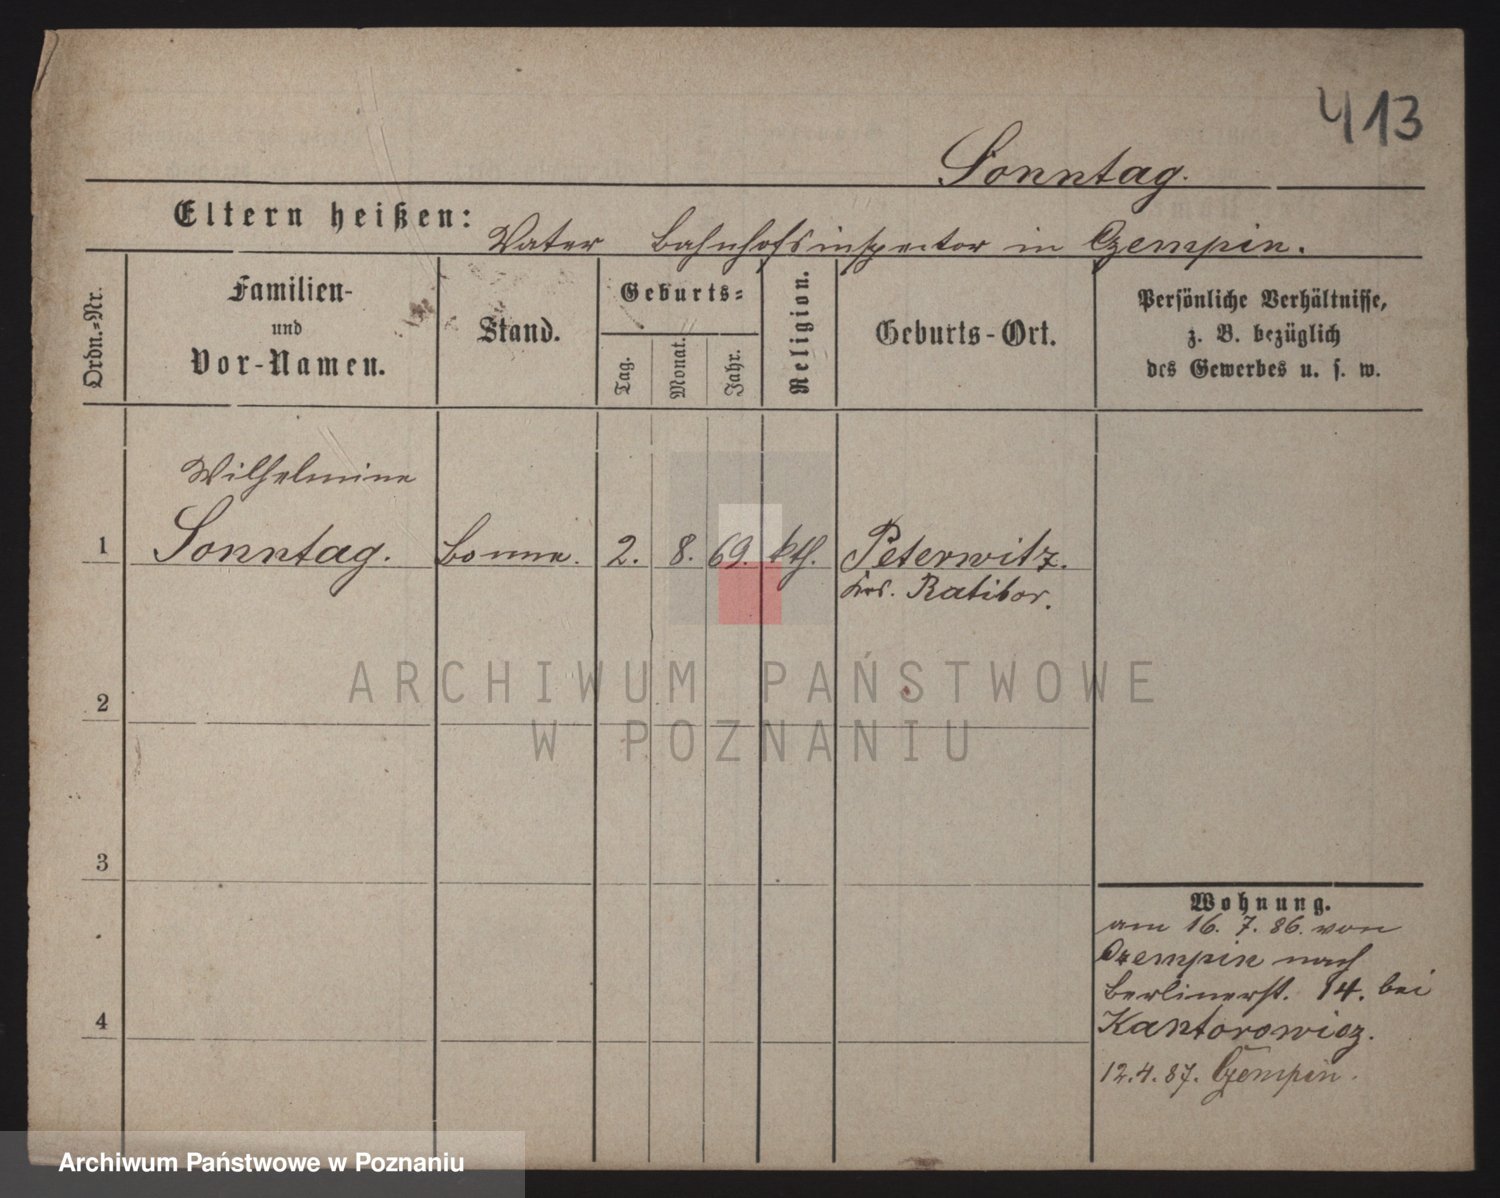 413
Sonntag.
Eltern heißen: Vater Bahnhofsinspector in Czempin.
Ordn.-Nr.
Familien-
und
Vor-Namen.
Stand.
Geburts-
Tag.
Monat.
Jahr.
Religion.
Geburts-Ort.
Persönliche Verhältnisse,
z. B. bezüglich
des Gewerbes u. s. w.
Wilhelmine
1 Sonntag. Bonne. 2. 8. 69. kth. Peterwitz.
Krs. Ratibor.
2
3
4
Wohnung.
am 16. 7. 86. von
Czempin nach
Berlinerst. 14. bei
Kantorowicz.
12.4.87. Czempin.
ARCHIWUM PAŃSTWOWE
W POZNANIU
Archiwum Państwowe w Poznaniu